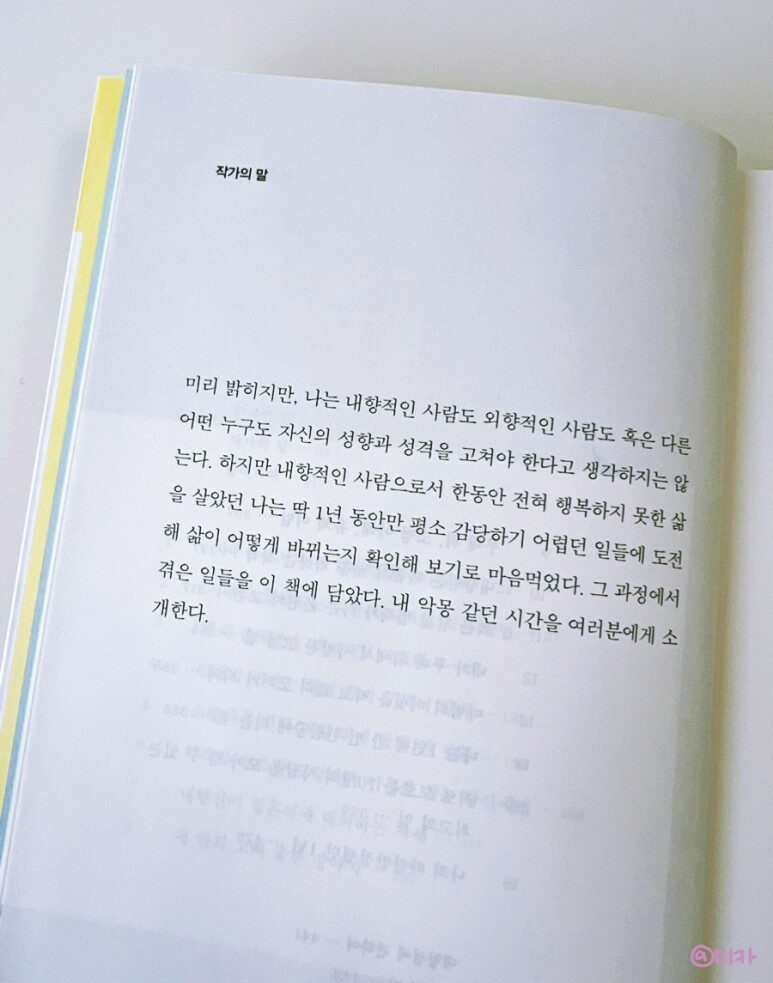 작가의 말
미리 밝히지만, 나는 내향적인 사람도 외향적인 사람도 혹은 다른
어떤 누구도 자신의 성향과 성격을 고쳐야 한다고 생각하지는 않
는다. 하지만 내향적인 사람으로서 한동안 전혀 행복하지 못한 삶
을 살았던 나는 딱 1년 동안만 평소 간당하기 어렵던 일들에 도전
해 삶이 어떻게 바뀌는지 확인해 보기로 마음먹었다. 그 과정에서
겪은 일들을 이 책에 담았다. 내 악몽 같던 시간을 여러분에게 소
개한다.
@비카